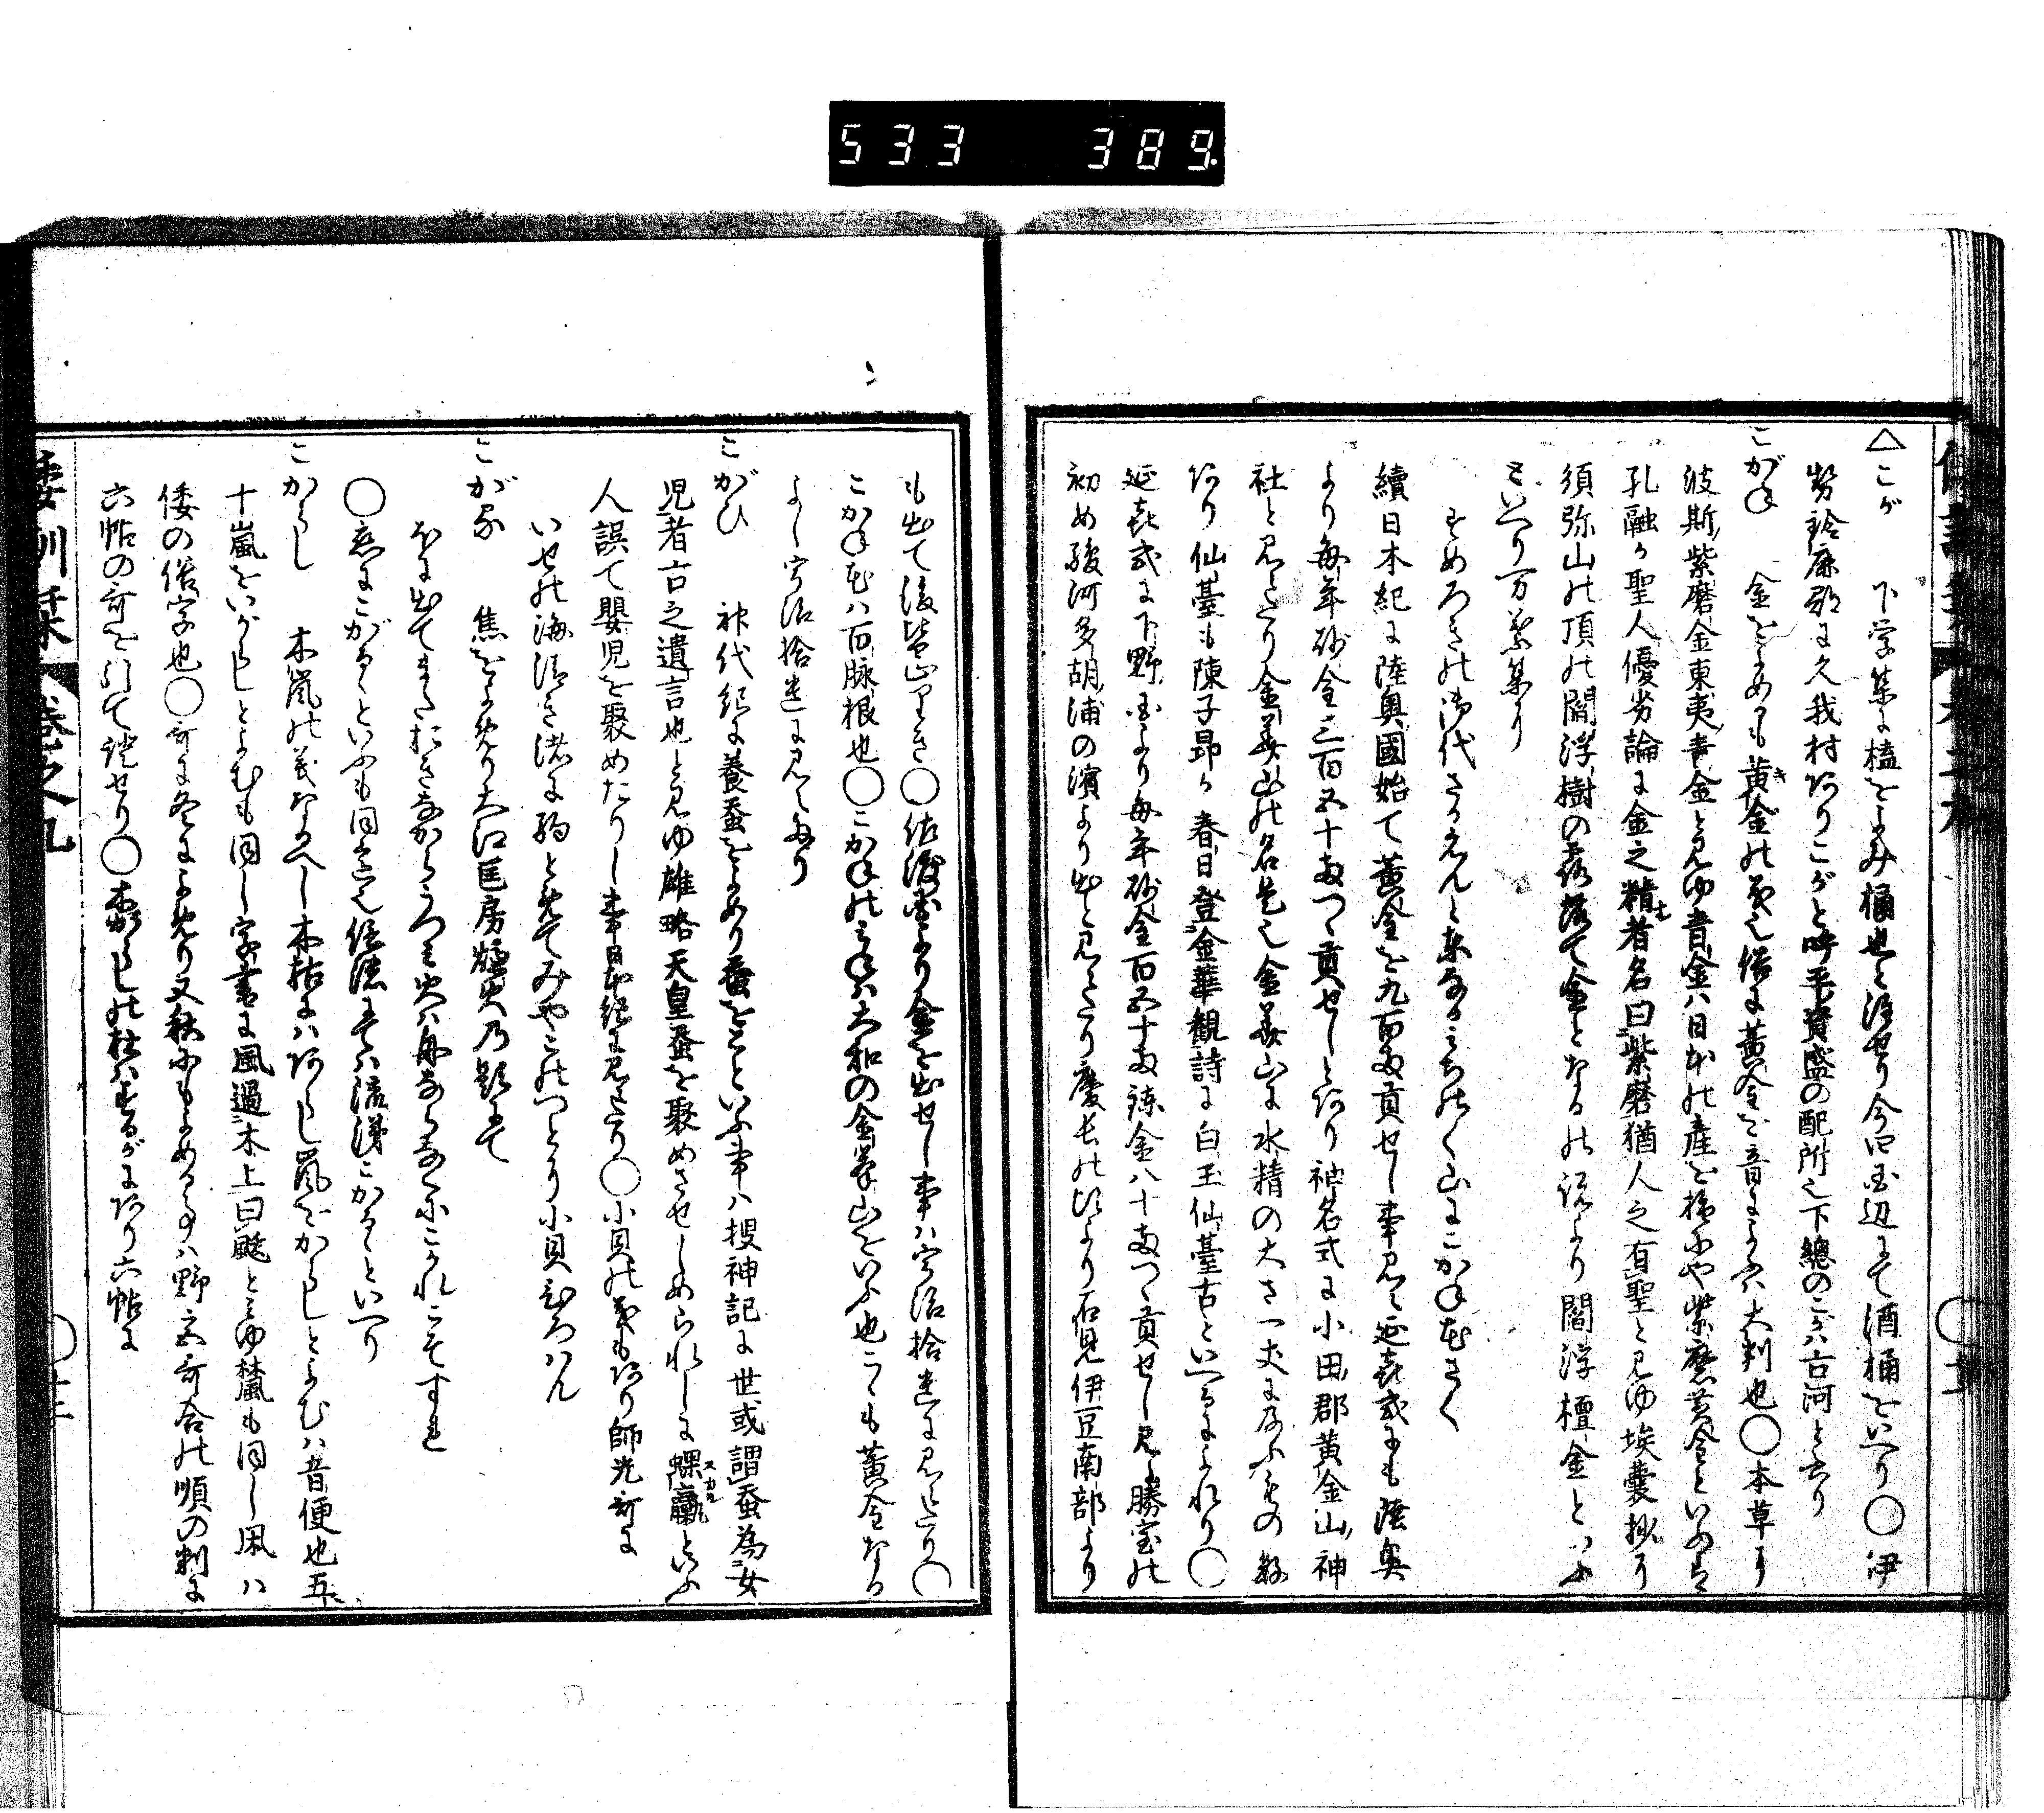 533 389
△こが 下学集に榼をよみ桶也と注せり今四国辺にて酒桶をいへり○伊
勢鈴鹿郡に久我村ありこがと呼平資盛の配所也下總のこがハ古河と云り
こがね 金をよめるも黄金の義也俗に黄金を音によへハ大判也○本草に
波斯紫磨金東夷青金と見ゆ青金ハ日本の産を
孔融か聖人優劣論に金之精者名曰紫磨猶人之有聖と見ゆ埃囊抄に
須弥山の頂の閻浮樹の落て金となるの説より閻浮檀金といふ
といへり万葉集に
すめろきの御代さかえんと東なるみちのく山にこかね花さく
續日本紀に陸奥國始て黄金を九百両貢せし事見え延喜式にも陸奥
より毎年砂金三百五十両つゝ貢せしとあり神名式に小田郡黄金山神
社と見えたり金華山の名是也金華山に水精の大さ一丈に及ふもの数
あり仙臺も陳子昂か春日登金華観詩に白玉仙臺古といへるによれり○
延喜式に下野国より毎年砂金百五十両練金八十両つゝ貢せし見ゆ勝宝の
初め駿河多胡浦の濱より出と見えたり慶長の頃より石見伊豆南部より
も出て後皆止にき○佐渡国より金を出せし事ハ宇治拾遺に見えたり○
こかね花ハ百脉根也○こかねのみねハ大和の金峯山をいふ也こゝも黄金なる
よし宇治拾遺に見えたり
こがひ 神代紀に養蚕をよめり蚕をこといふ事ハ捜神記に世或謂蚕為女
児者古之遺言也と見ゆ雄略天皇蚕を聚めさせしめられしに蜾蠃スカルといふ
人誤て嬰児を聚めたりし事日本紀に見えたり○小貝の義もあり師光哥に
いせの海清き渚に駒とめてみやこのつとに小貝ひろはん
こがる 焦をよめり大江匡房爐火乃影にて
ほに出て
○恋にこがるゝといふも同意也伝法にてハ流涕こかるゝといへり
こがらし 木嵐の義なるへし木枯にハあらし嵐をからしとよむハ音便也五
十嵐をいがらしとよむも同し字書に風過木上曰颴とみゆ檒も同し凩ハ
倭の俗字也○哥に冬によめり又秋にもよめる事ハ野宮哥合の順の判に
六帖の哥を引て証せり○木がらしの杜ハするがにあり六帖に
倭訓栞 巻之九